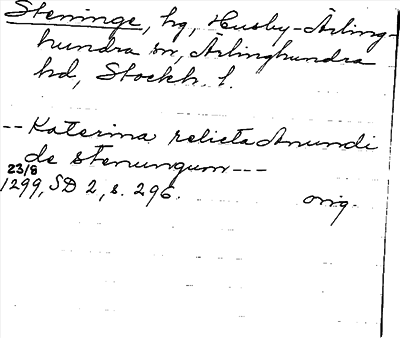 Steninge, hg, Husby-Ärling-
hundra sn, Ärlinghundra
hd, Stockh. l.
-- Katerina relicta Anundi
de stenungum ---
23/8
1299, SD 2, s. 296. orig.